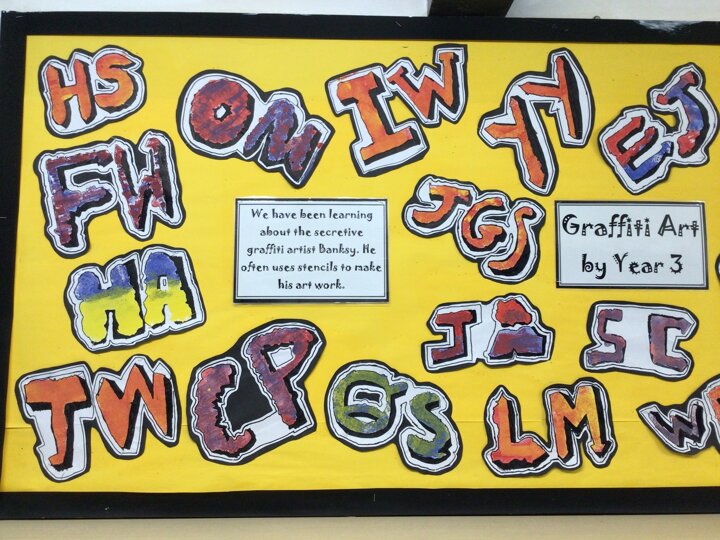 HS
ON
IW
YY
EJ
FW
JGS
We have been learning
about the secretive
graffiti artist Banksy. He
often uses stencils to make
his art work.
Graffiti Art
by Year 3
HA
JA
SC
JW
CP
LM
W